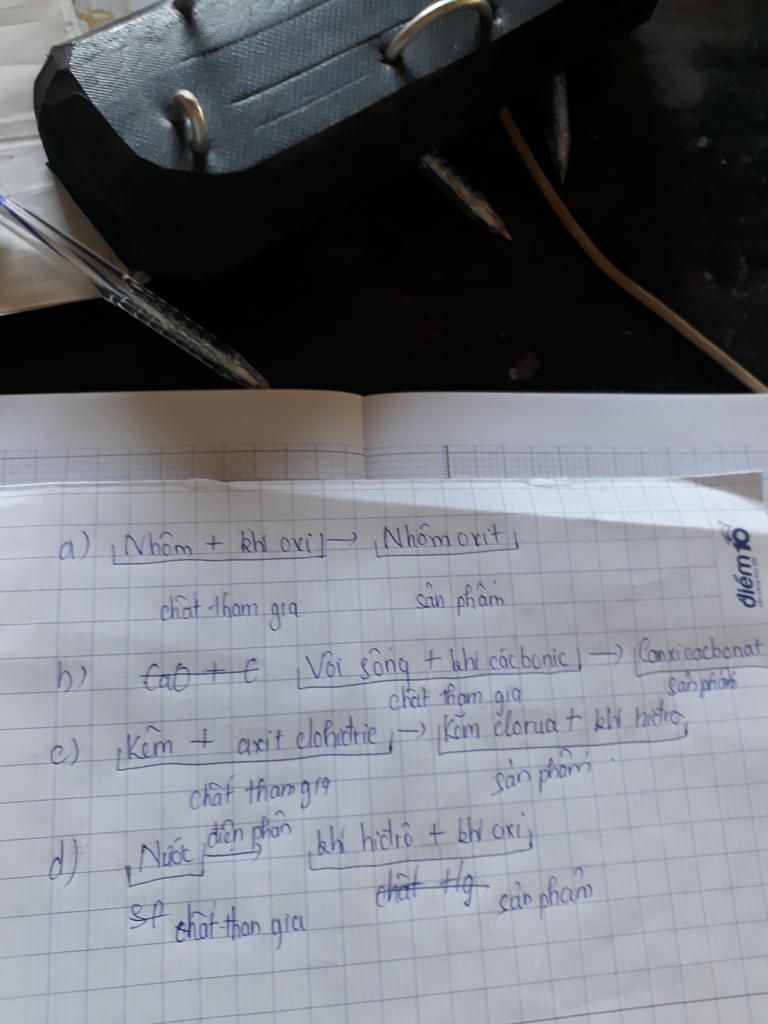 a) Nhôm + khí oxi → Nhôm oxit
chất tham gia sản phẩm
điểm 10
b) CaO + C Vôi sống + khí cácbonic → Canxicacbonat
chất tham gia sản phẩm
c) Kẽm + axit clohiđric → Kẽm clorua + khí hiđro
chất tham gia sản phẩm
d) Nước điện phân → khí hiđrô + khí oxi
SP chất than gia chất tg sản phẩm